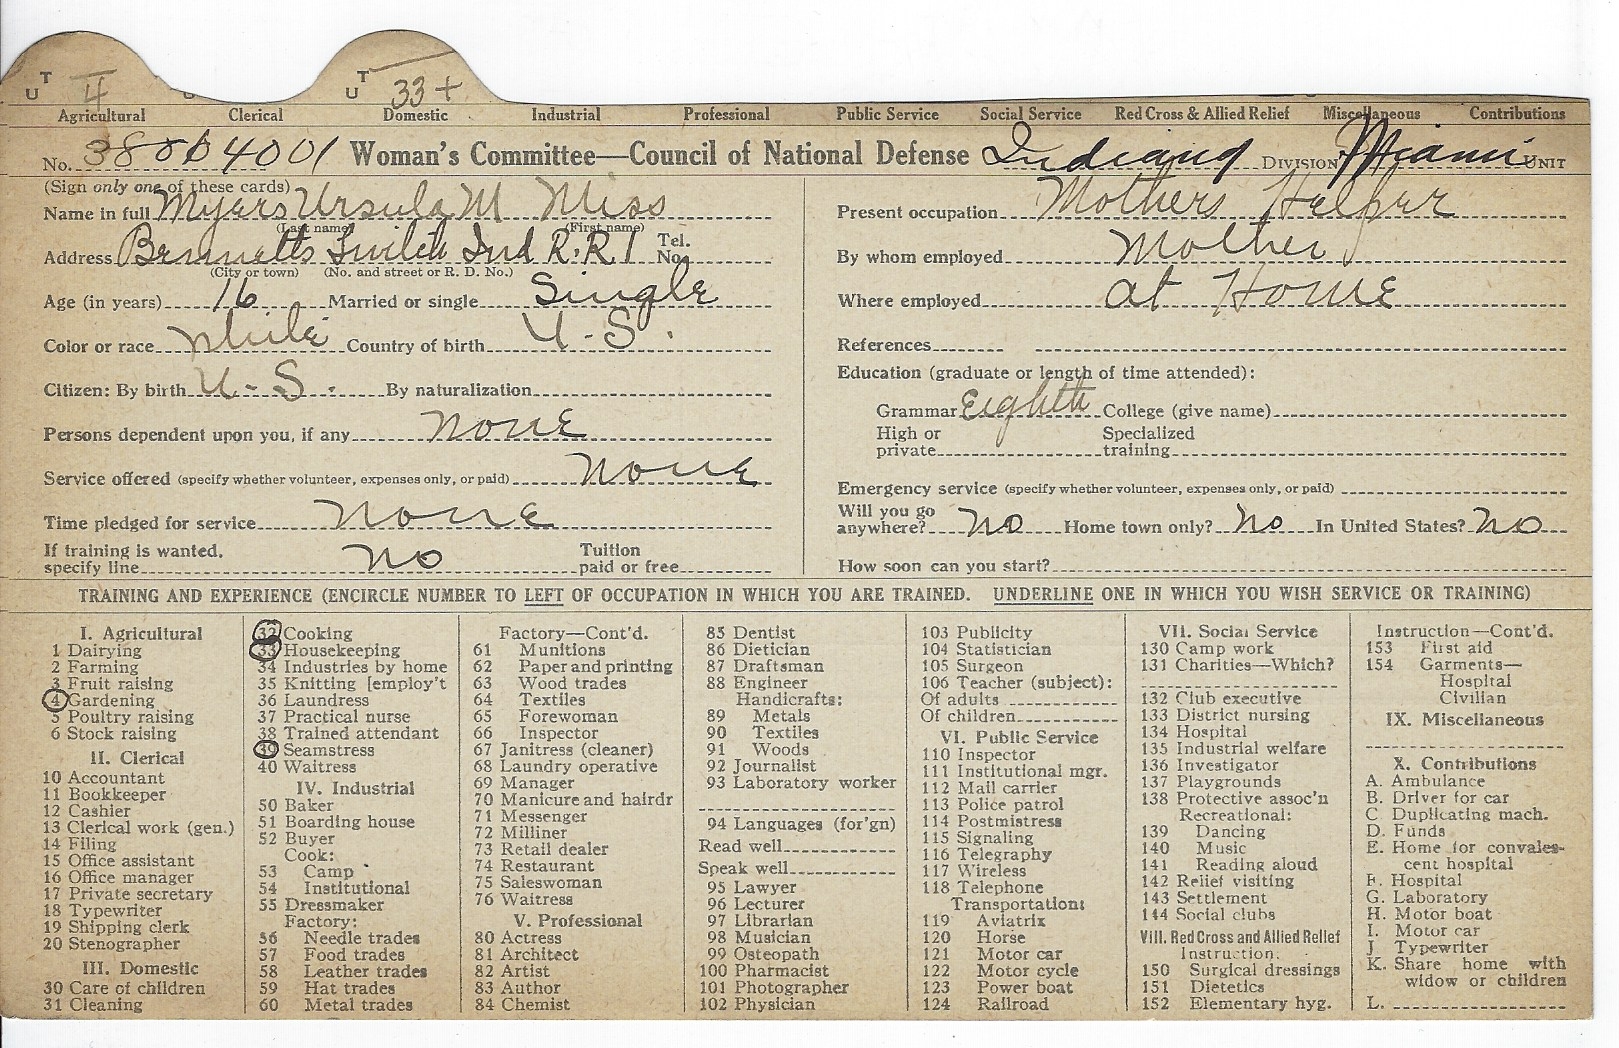 T T
U 4 U 33 +
Agricultural Clerical Domestic Industrial Professional Public Service Social Service Red Cross & Allied Relief Miscellaneous Contributions
No. 38004001 Woman's Committee—Council of National Defense Indiana DIVISION Miami UNIT
(Sign only one of these cards)
Name in full Myers Ursula M Miss
(Last name) (First name)
Address Bennetts Switch Ind R.R 1 Tel. No.
(City or town) (No. and street or R. D. No.)
Age (in years) 16 Married or single Single
Color or race White Country of birth U-S.
Citizen: By birth U-S- By naturalization
Persons dependent upon you, if any None
Service offered (specify whether volunteer, expenses only, or paid) None
Time pledged for service None
If training is wanted, specify line No Tuition paid or free
Present occupation Mothers Helper
By whom employed Mother
Where employed at Home
References
Education (graduate or length of time attended):
Grammar Eighth College (give name)
High or private Specialized training
Emergency service (specify whether volunteer, expenses only, or paid)
Will you go anywhere? No Home town only? No In United States? No
How soon can you start?
TRAINING AND EXPERIENCE (ENCIRCLE NUMBER TO LEFT OF OCCUPATION IN WHICH YOU ARE TRAINED. UNDERLINE ONE IN WHICH YOU WISH SERVICE OR TRAINING)
I. Agricultural
1 Dairying
2 Farming
3 Fruit raising
4 Gardening
5 Poultry raising
6 Stock raising
II. Clerical
10 Accountant
11 Bookkeeper
12 Cashier
13 Clerical work (gen.)
14 Filing
15 Office assistant
16 Office manager
17 Private secretary
18 Typewriter
19 Shipping clerk
20 Stenographer
III. Domestic
30 Care of children
31 Cleaning
32 Cooking
33 Housekeeping
34 Industries by home
35 Knitting [employ't
36 Laundress
37 Practical nurse
38 Trained attendant
39 Seamstress
40 Waitress
IV. Industrial
50 Baker
51 Boarding house
52 Buyer
Cook:
53 Camp
54 Institutional
55 Dressmaker
Factory:
56 Needle trades
57 Food trades
58 Leather trades
59 Hat trades
60 Metal trades
Factory—Cont'd.
61 Munitions
62 Paper and printing
63 Wood trades
64 Textiles
65 Forewoman
66 Inspector
67 Janitress (cleaner)
68 Laundry operative
69 Manager
70 Manicure and hairdr
71 Messenger
72 Milliner
73 Retail dealer
74 Restaurant
75 Saleswoman
76 Waitress
V. Professional
80 Actress
81 Architect
82 Artist
83 Author
84 Chemist
85 Dentist
86 Dietician
87 Draftsman
88 Engineer
Handicrafts:
89 Metals
90 Textiles
91 Woods
92 Journalist
93 Laboratory worker
94 Languages (for'gn)
Read well
Speak well
95 Lawyer
96 Lecturer
97 Librarian
98 Musician
99 Osteopath
100 Pharmacist
101 Photographer
102 Physician
103 Publicity
104 Statistician
105 Surgeon
106 Teacher (subject):
Of adults
Of children
VI. Public Service
110 Inspector
111 Institutional mgr.
112 Mail carrier
113 Police patrol
114 Postmistress
115 Signaling
116 Telegraphy
117 Wireless
118 Telephone
Transportation:
119 Aviatrix
120 Horse
121 Motor car
122 Motor cycle
123 Power boat
124 Railroad
VII. Social Service
130 Camp work
131 Charities—Which?
132 Club executive
133 District nursing
134 Hospital
135 Industrial welfare
136 Investigator
137 Playgrounds
138 Protective assoc'n
Recreational:
139 Dancing
140 Music
141 Reading aloud
142 Relief visiting
143 Settlement
144 Social clubs
VIII. Red Cross and Allied Relief
Instruction:
150 Surgical dressings
151 Dietetics
152 Elementary hyg.
Instruction—Cont'd.
153 First aid
154 Garments—
Hospital
Civilian
IX. Miscellaneous
X. Contributions
A. Ambulance
B. Driver for car
C. Duplicating mach.
D. Funds
E. Home for convales-
cent hospital
F. Hospital
G. Laboratory
H. Motor boat
I. Motor car
J. Typewriter
K. Share home with
widow or children
L.